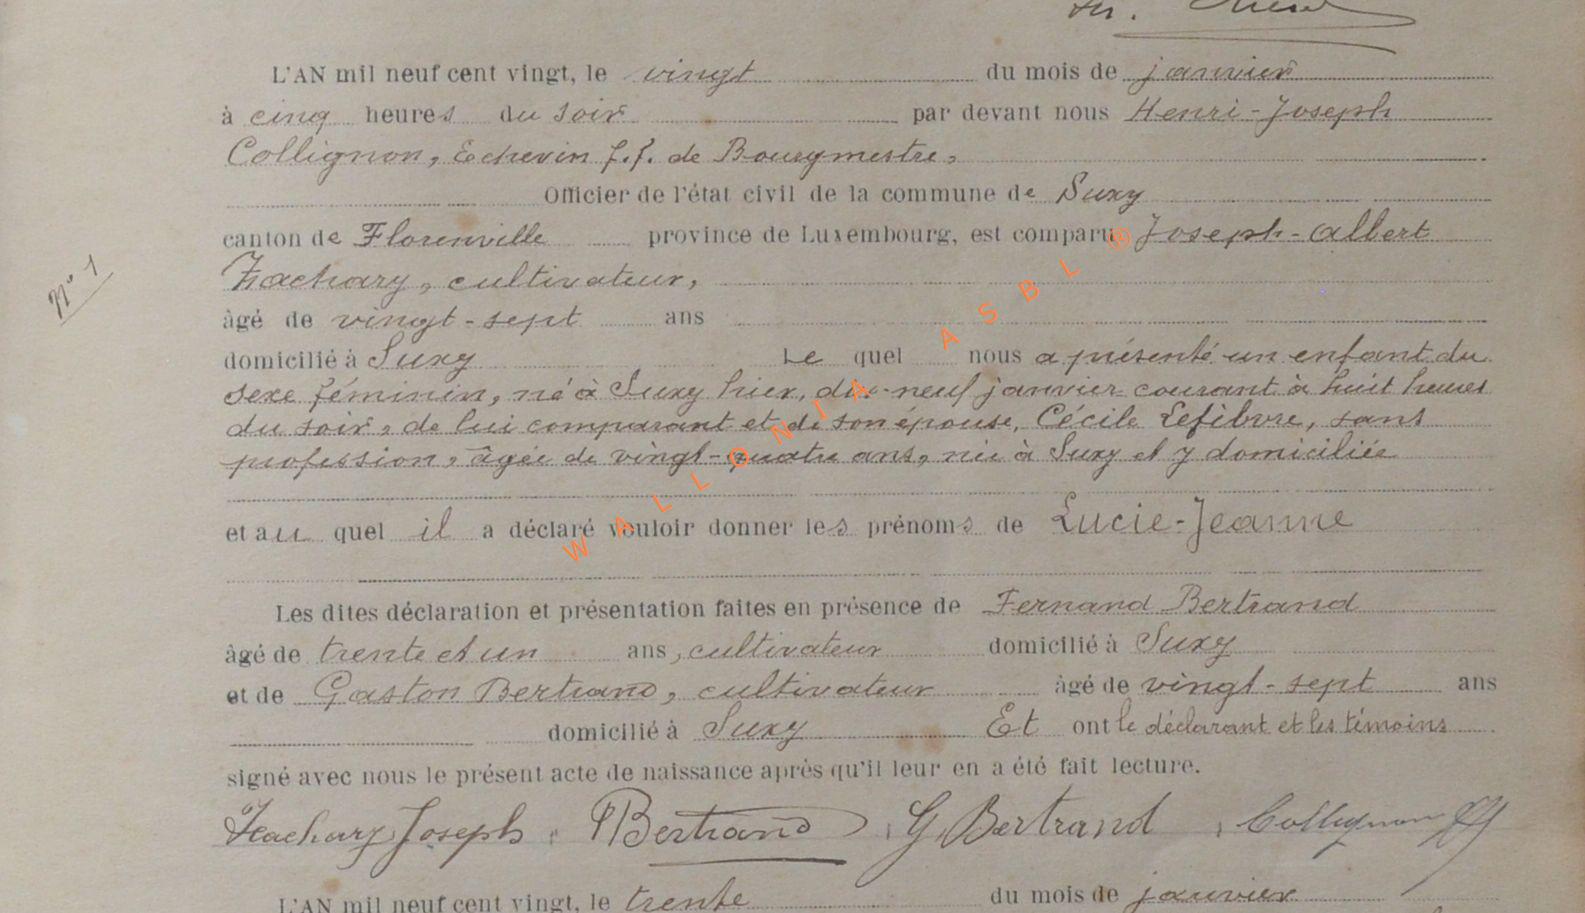 L'AN mil neuf cent vingt, le vingt du mois de janvier
à cinq heures du soir par devant nous Henri-Joseph
Collignon, Echevin f.f. de Bourgmestre,
Officier de l'état civil de la commune de Suxy
canton de Florenville province de Luxembourg, est comparu Joseph-Albert
Zachary, cultivateur,
N° 1
âgé de vingt-sept ans
domicilié à Suxy Le quel nous a présenté un enfant du
sexe féminin, né à Suxy hier, dix-neuf janvier courant à huit heures
du soir, de lui comparant et de son épouse, Cécile Lefèbvre, sans
profession, âgée de vingt-quatre ans, née à Suxy et y domiciliée
et au quel il a déclaré vouloir donner les prénoms de Lucie-Jeanne
Les dites déclaration et présentation faites en présence de Fernand Bertrand
âgé de trente et un ans, cultivateur domicilié à Suxy
et de Gaston Bertrand, cultivateur âgé de vingt-sept ans
domicilié à Suxy Et ont le déclarant et les témoins
signé avec nous le présent acte de naissance après qu'il leur en a été fait lecture.
Zachary Joseph Bertrand G Bertrand Collignon
L'AN mil neuf cent vingt, le trente du mois de janvier
WALLONIA ASBL ©